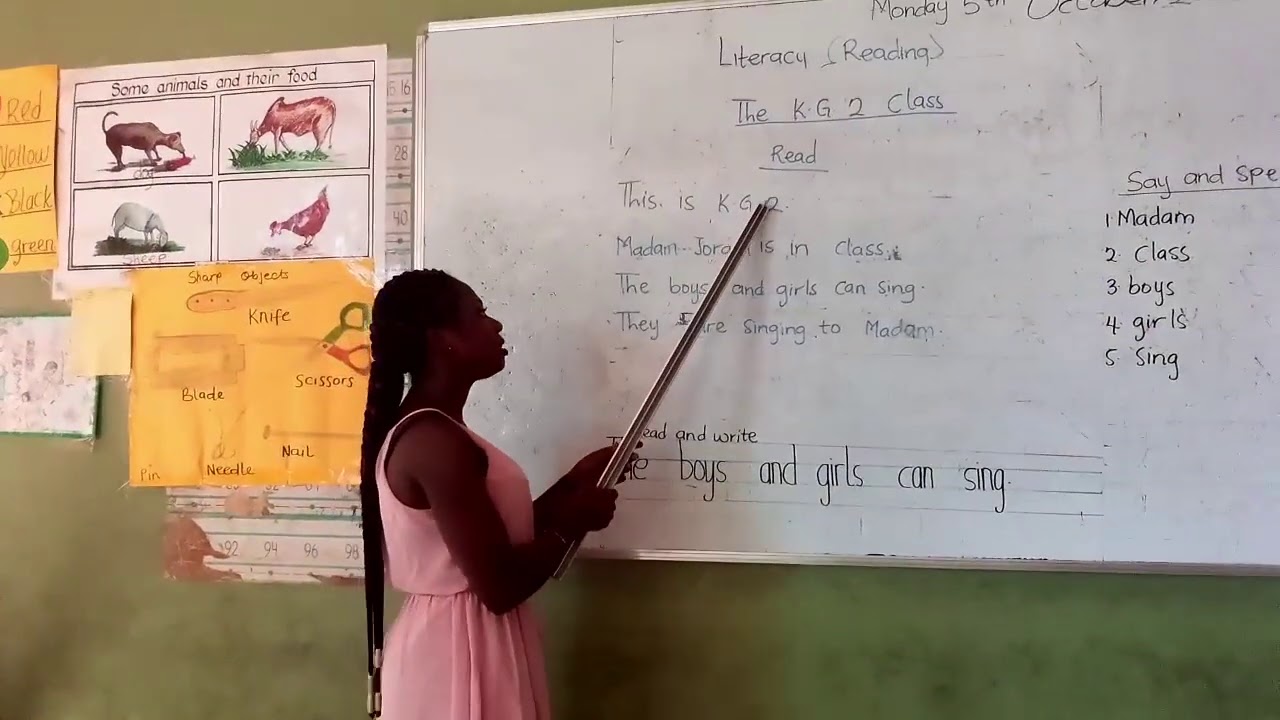 Monday 5th October
Literacy (Reading)
The K.G 2 Class
Read
This. is K G 2.
Madam is in Class.
The boys and girls can sing.
They are singing to Madam.
read and write
The boys and girls can sing.
Say and Spe
1. Madam
2. Class
3. boys
4. girls
5. Sing
Red
Yellow
Black
green
Some animals and their food
dog
Sheep
16
28
40
Sharp Objects
Knife
Blade
Scissors
Nail
Pin
Needle
92 94 96 98